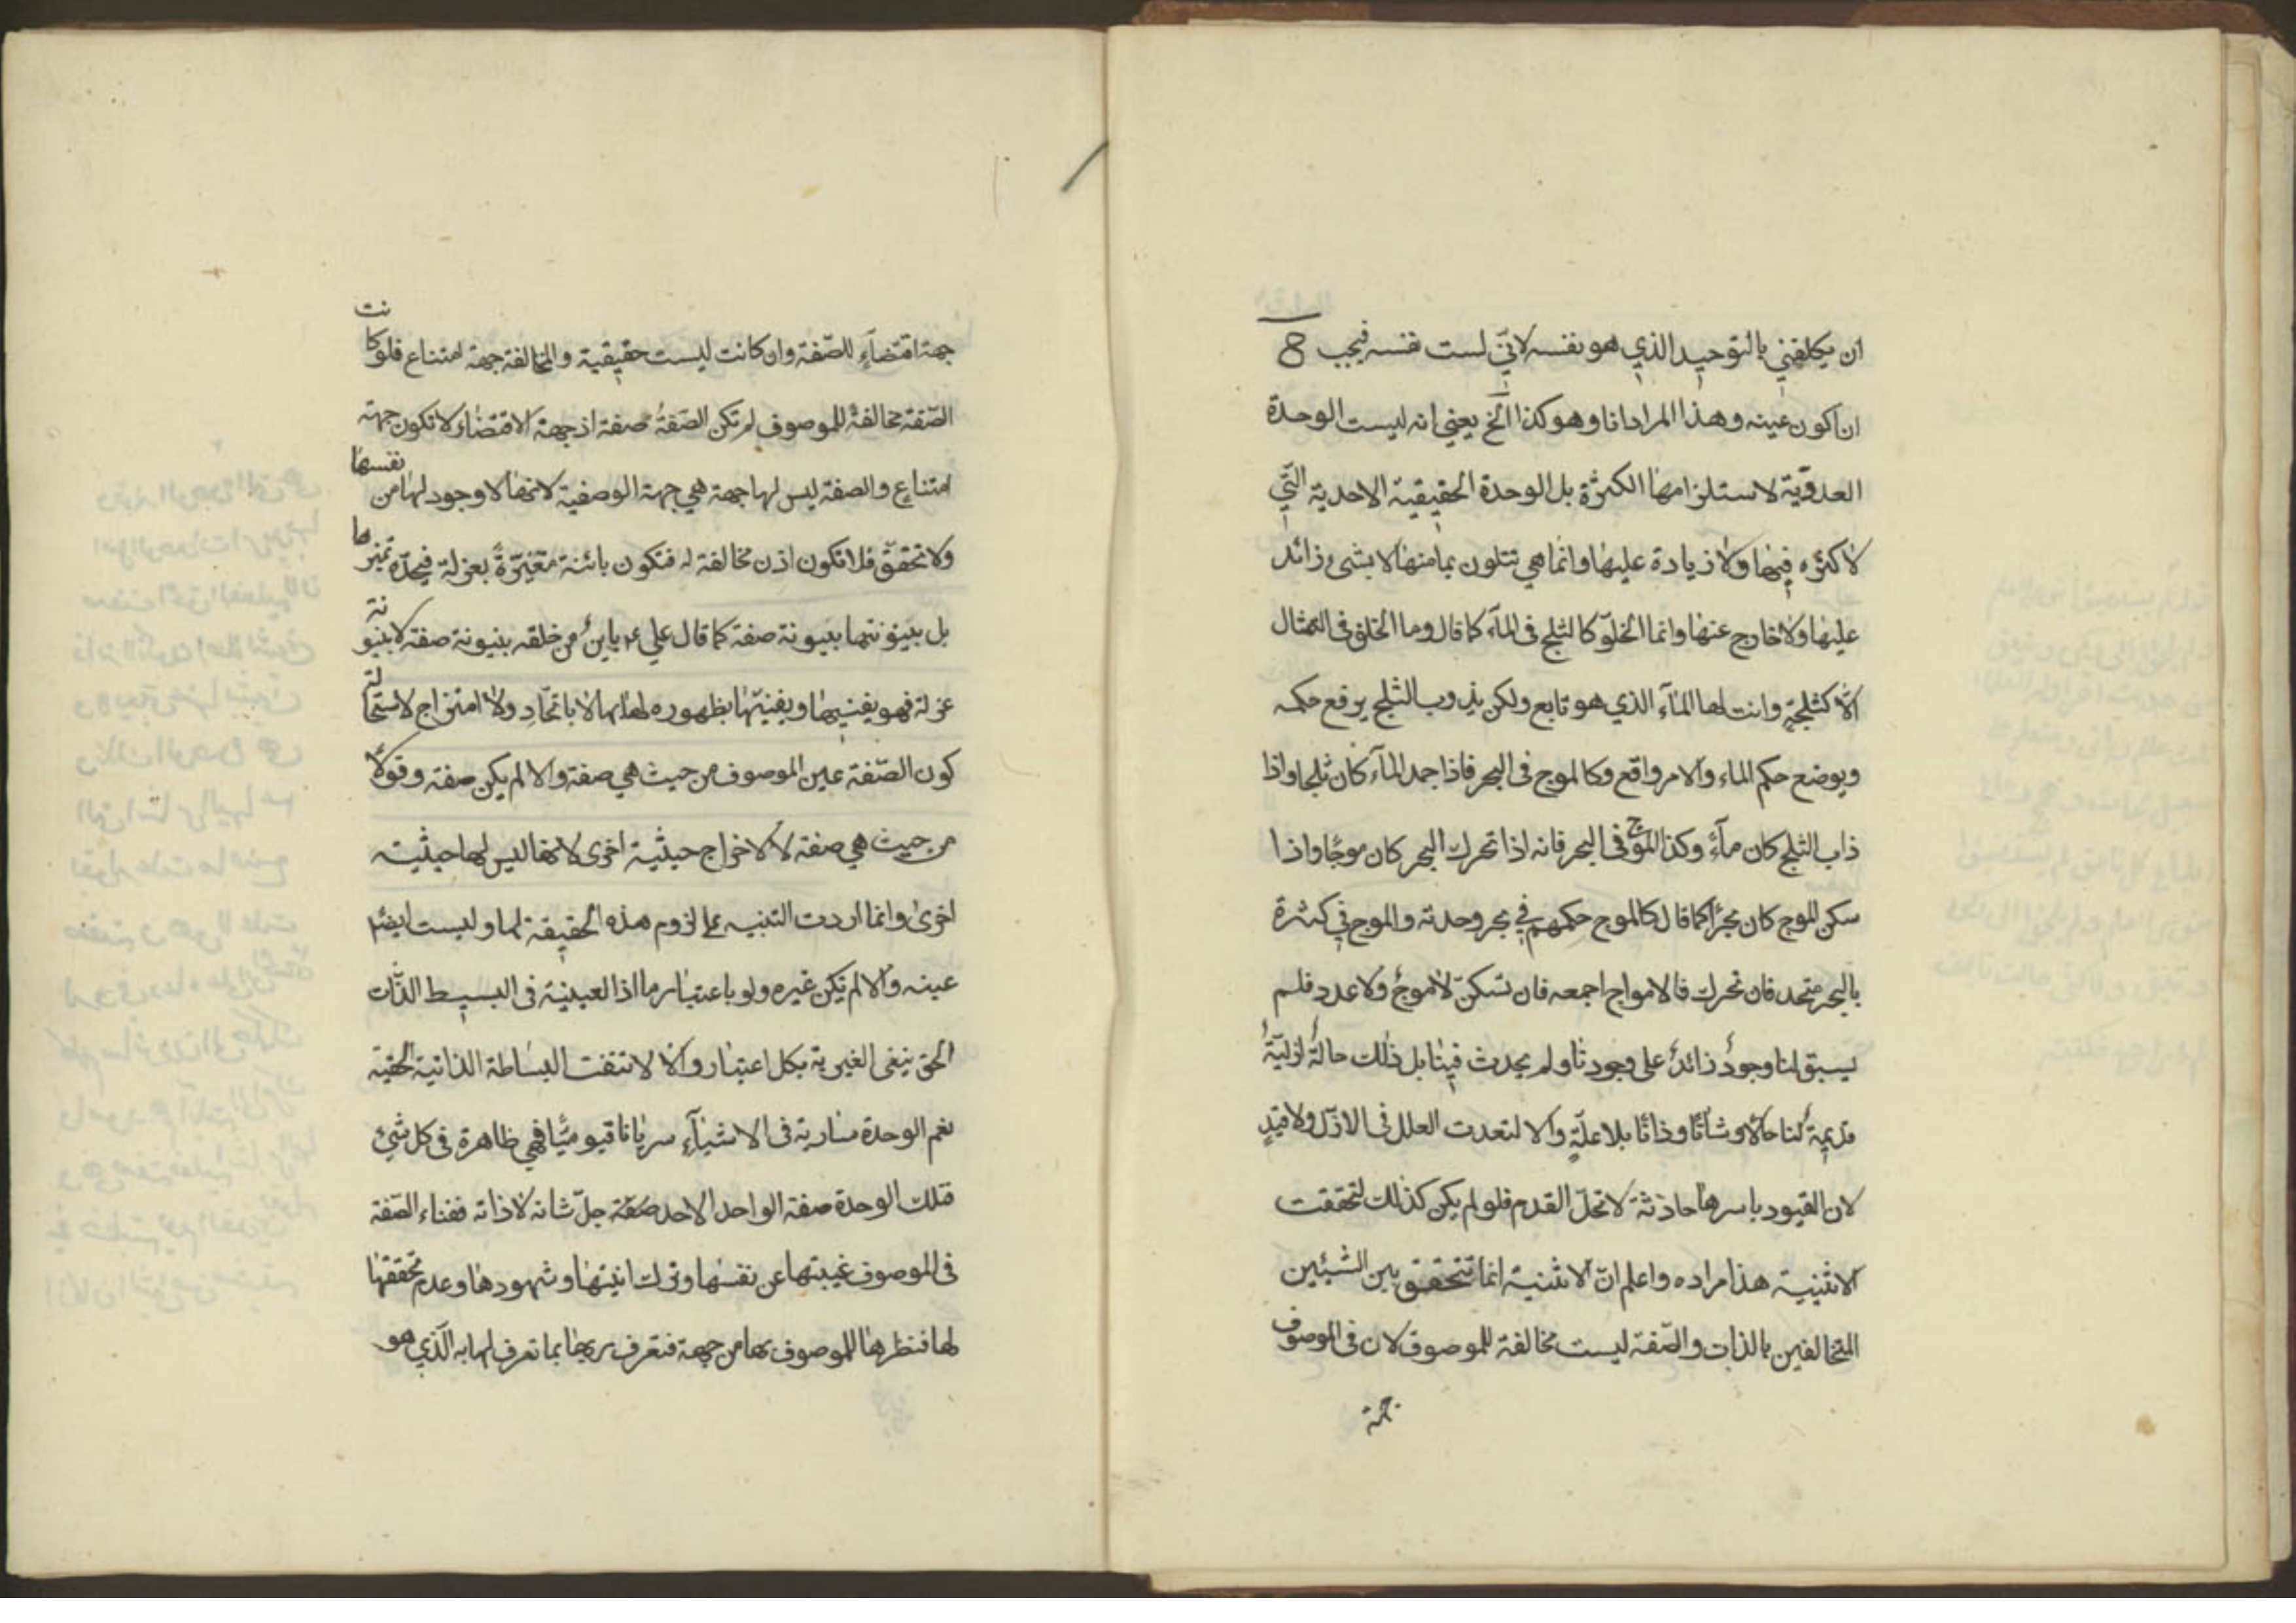 ان يكلفني بالتوحيد الذي هو نفسه لاني لست نفسه فيجب ح
ان اكون عينه وهذا المراد انا وهو كذا الخ يعني انه ليست الوحدة
العددية لاستلزامها الكثرة بل الوحدة الحقيقية الاحدية التي
لا كثره فيها ولا زيادة عليها وانما هي تتلون بما منها لا بشئ زائد
عليها ولا خارج عنها وانما الخلق كالثلج في المآء كما قال وما الخلق في التمثال
الا كثلجة وانت لها المآء الذي هو تابع ولكن بذوب الثلج يرفع حكمه
ويوضع حكم الماء والامر واقع وكالموج في البحر فاذا جمد المآء كان ثلجا واذا
ذاب الثلج كان مآءً وكذا الموج في البحر فانه اذا تحرك البحر كان موجًا واذا
سكن الموج كان بحرًا كما قال كالموج حكمهم في بحر وحدته والموج في كثرة
بالبحر متحد فان تحرك فالامواج اجمعه فان تسكن لا موجٌ ولا عدد فلم
يسبق لنا وجودٌ زائدٌ على وجودنا ولم يحدث فينا بل ذلك حالةٌ ازليّةٌ
قديمةٌ لنا حالا وشأنًا وذاتًا بلا علّةٍ والا لتعدت العلل في الازل ولا قيدٍ
لان القيود باسرها حادثة لا تحلّ القدم فلو لم يكن كذلك لتحققت
الاثنينية هذا مراده واعلم انّ الاثنينية انما تتحقق بين الشيئين
المتخالفين بالذات والصّفة ليست مخالفة للموصوف لان في الموصوف
جهة
جهة اقتضآءٍ للصّفة وان كانت ليست حقيقية والمخالفة جهة امتناع فلو كانت
الصّفة مخالفةً للموصوف لم تكن الصّفةُ صفة اذ جهة الاقتضاء لا تكون جهة
امتناعٍ والصفة ليس لها جهة هي جهة الوصفية لانها لا وجود لها من نفسها
ولا تحقق فلا تكون اذن مخالفة له فتكون بائنة متغيّرةً بعزلة فيحدّه تميزها
بل بينونتها بينونة صفة كما قال علي ع باينٌ من خلقه بينونة صفة لا بينونة
عزلة فهو يغنيها ويفنيها بظهوره لها بها لا باتحادٍ ولا امتزاج لاستحالة
كون الصّفة عين الموصوف من حيث هي صفة والا لم يكن صفة وقولًا
من حيث هي صفة لا لاخراج حيثية اخرى لانها ليس لها حيثية
اخرى وانما اردت التنبيه على لزوم هذه الحقيقة لها وليست ايضًا
عينه والا لم تكن غيره ولو باعتبار ما اذ العينية في البسيط الذّات
الحق ينفى الغيرية بكل اعتبار والا لانتفت البساطة الذاتية الحقية
نعم الوحدة سارية في الاشيآءِ سريانا قيوميًّا فهي ظاهرة في كل شئ
فتلك الوحدة صفة الواحد الاحد صفة جلّ شانه لا ذاته ففناء الصّفة
في الموصوف غيبتها عن نفسها وترك انيتها وشهودها وعدم تحققها
لها فنظرها للموصوف بها من جهة فتعرف ربها بما تعرف لها به الّذي هو